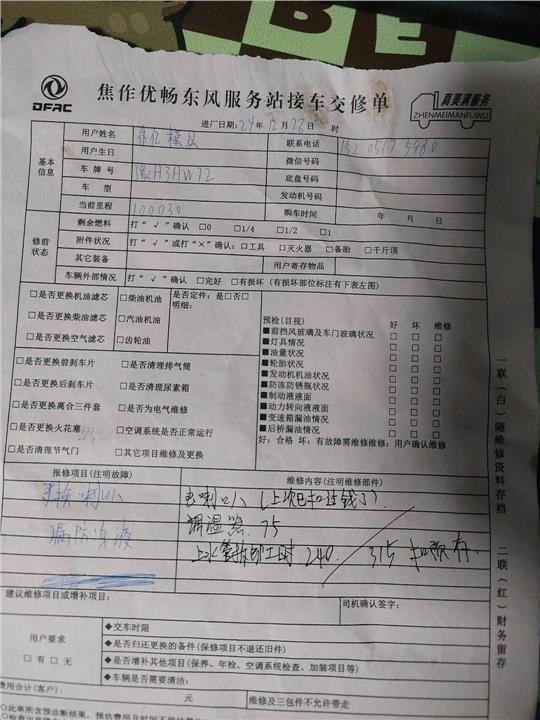 BE
DFAC 焦作优畅东风服务站接车交修单 真美满服务
ZHENMEIMANFUWU
进厂日期:24年12月28日 时
基本信息
用户姓名 联系电话
用户生日 微信号码
车牌号 豫H3HW72 底盘号码
车型 发动机号码
当前里程 100030 购车时间 年 月 日
修前状态
剩余燃料 打“√”确认 □0 □1/4 □1/2 □1
附件状况 打“√”或打“×”确认:□工具 □灭火器 □备胎 □千斤顶
其它装备 用户寄存物品
车辆外部情况 打“√”确认 □完好 □有损坏(有损坏部位标注有下表左图)
□是否更换机油滤芯 □柴油机油 是否定件:是□否□
明细:
□是否更换柴油滤芯 □汽油机油
□是否更换空气滤芯 □齿轮油
预检(目视) 好 坏 维修
■前挡风玻璃及车门玻璃状况 □ □ □
■灯具情况 □ □ □
■油量状况 □ □ □
■轮胎状况 □ □ □
■发动机机油状况 □ □ □
■防冻防锈瓶状况 □ □ □
■制动液液面 □ □ □
■动力转向液液面 □ □ □
■变速箱漏油情况 □ □ □
■后桥漏油情况 □ □ □
好:合格 坏:有故障需维修维修:用户确认维修
□是否更换前刹车片 □是否清理排气筒
□是否更换后刹车片 □是否清理尿素箱
□是否更换离合三件套 □是否为电气维修
□是否更换火花塞 □空调系统是否正常运行
□是否清理节气门 □其它项目维修及更换
报修项目(注明故障) 维修内容(注明维修部件)
更换喇叭 喇叭(上次已扣过钱了)
漏防冻液 调温器 75
上水管拆卸工时 240 315 扣预存
建议维修项目或增补项目: 司机确认签字:
用户要求
□有□无
◆交车时限
◆是否归还更换的备件(保修项目不退还旧件)
◆是否增补其他项目(保养、年检、空调系统检查、加装项目等)
◆车辆是否需要清洁:
费用合计(客户): 元 维修及三包件不允许带走
一联(白)随维修资料存档 二联(红)财务留存